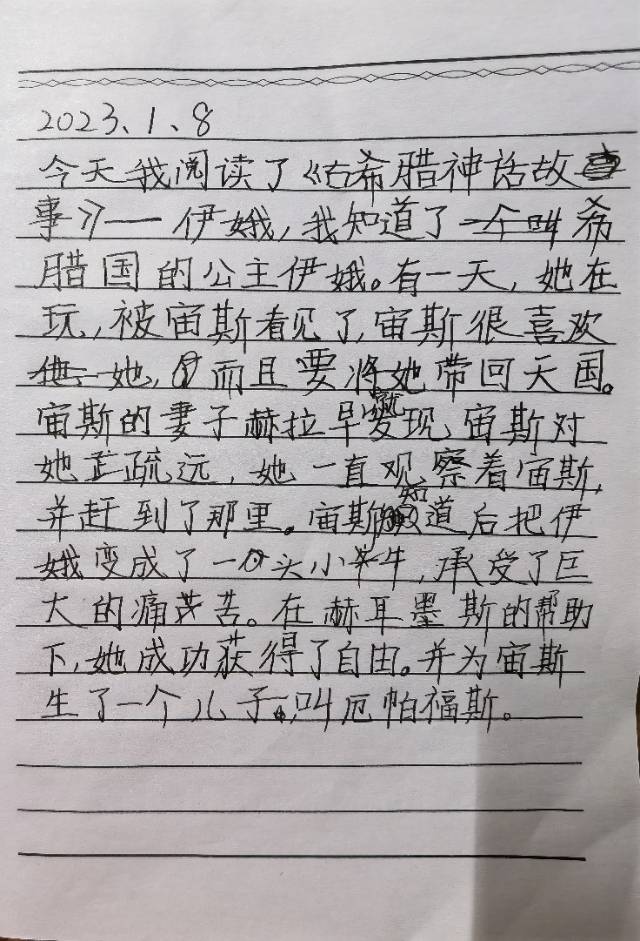 2023、1、8
今天我阅读了《古希腊神话故
事》——伊娥,我知道了一个叫希
腊国的公主伊娥。有一天,她在
玩,被宙斯看见了,宙斯很喜欢
她,而且要将她带回天国。
宙斯的妻子赫拉早就发现,宙斯对
她疏远,她一直观察着宙斯,
并赶到了那里。宙斯知道后把伊
娥变成了一头小牛,承受了巨
大的痛苦。在赫耳墨斯的帮助
下,她成功获得了自由。并为宙斯
生了一个儿子,叫厄帕福斯。